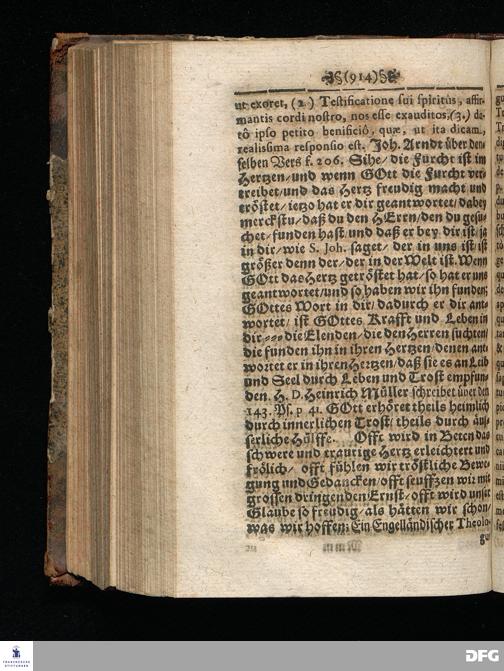 (914)
ut exoret, (2.) Testificatione sui spiritùs, affir-
mantis cordi nostro, nos esse exauditos, (3.) da-
tô ipso petito beneficiô, quæ, ut ita dicam,
realissima responsio est. Joh. Arndt über den-
selben Vers f. 206. Sihe/ die Furcht ist im
Hertzen/ und wenn GOtt die Furcht ver-
treibet/ und das Hertz freudig macht und
tröstet/ ietzo hat er dir geantwortet/ dabey
merckstu/ daß du den HErrn/ den du gesu-
chet/ funden hast und daß er bey dir ist/ ja
in dir/ wie S. Joh. saget/ der in uns ist ist
größer denn der/ der in der Welt ist. Wenn
GOtt das Hertz getröstet hat/ so hat er uns
geantwortet/ und so haben wir ihn funden;
GOttes Wort in dir/ dadurch er dir ant-
wortet/ ist GOttes Krafft und Leben in
dir --- die Elenden/ die den Herren suchten/
die funden ihn in ihren Hertzen/ denen ant-
wortet er in ihren Hertzen/ daß sie es an Leib
und Seel durch Leben und Trost empfun-
den. H. D. Heinrich Müller schreibet über den
143. Ps. p 41. GOtt erhöret theils heimlich
durch innerlichen Trost/ theils durch äus-
serliche Hülffe. Offt wird in Beten das
schwere und traurige Hertz erleichtert und
frölich/ offt fühlen wir tröstliche Bewe-
gung und Gedancken/ offt seuffzen wir mit
grossen dringenden Ernst/ offt wird unser
Glaube so freudig/ als hätten wir schon/
was wir hoffen; Ein Engelländischer Theolo-
FRANCKESCHE
STIFTUNGEN
DFG